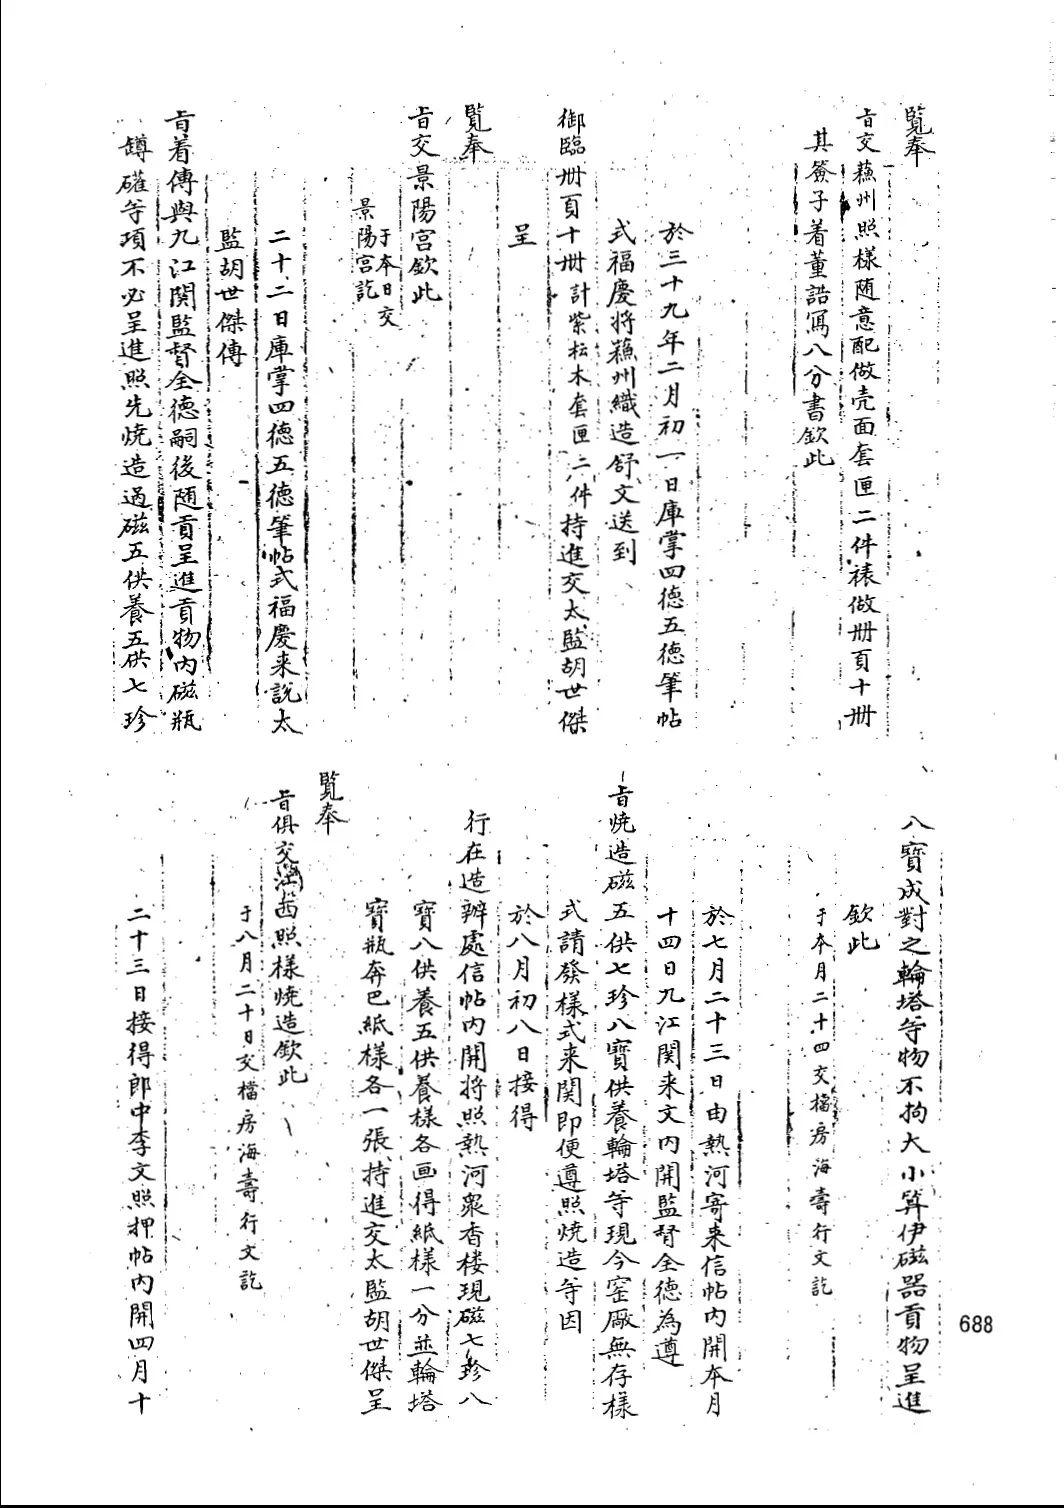 覧奉
旨交蘓州照樣随意配做壳面套匣二件裱做冊頁十冊
其簽子着董誥寫八分書欽此
於三十九年二月初一日庫掌四德五德筆帖
式福慶將蘓州織造舒文送到
御臨冊頁十冊計紫松木套匣二件持進交太監胡世傑
呈
覧奉
旨交景陽宫欽此
于本日交
景陽宫訖
二十二日庫掌四德五德筆帖式福慶来說太
監胡世傑傳
旨着傳與九江関監督全德嗣後随貢呈進貢物内磁瓶
罇礶等項不必呈進照先燒造過磁五供養五供七珍
八寶成對之輪塔等物不拘大小算伊磁器貢物呈進
欽此
于本月二十四交檔房海壽行文訖
於七月二十三日由熱河寄来信帖内開本月
十四日九江関来文内開監督全德為遵
旨燒造磁五供七珍八寶供養輪塔等現今窑厰無存樣
式請發樣式来関即便遵照燒造等因
於八月初八日接得
行在造辦處信帖内開將照熱河衆香楼現磁七珍八
寶八供養五供養樣各画得紙樣一分並輪塔
寶瓶奔巴紙樣各一張持進交太監胡世傑呈
覧奉
旨俱交江西照樣燒造欽此
于八月二十日交檔房海壽行文訖
二十三日接得郎中李文照押帖内開四月十
688